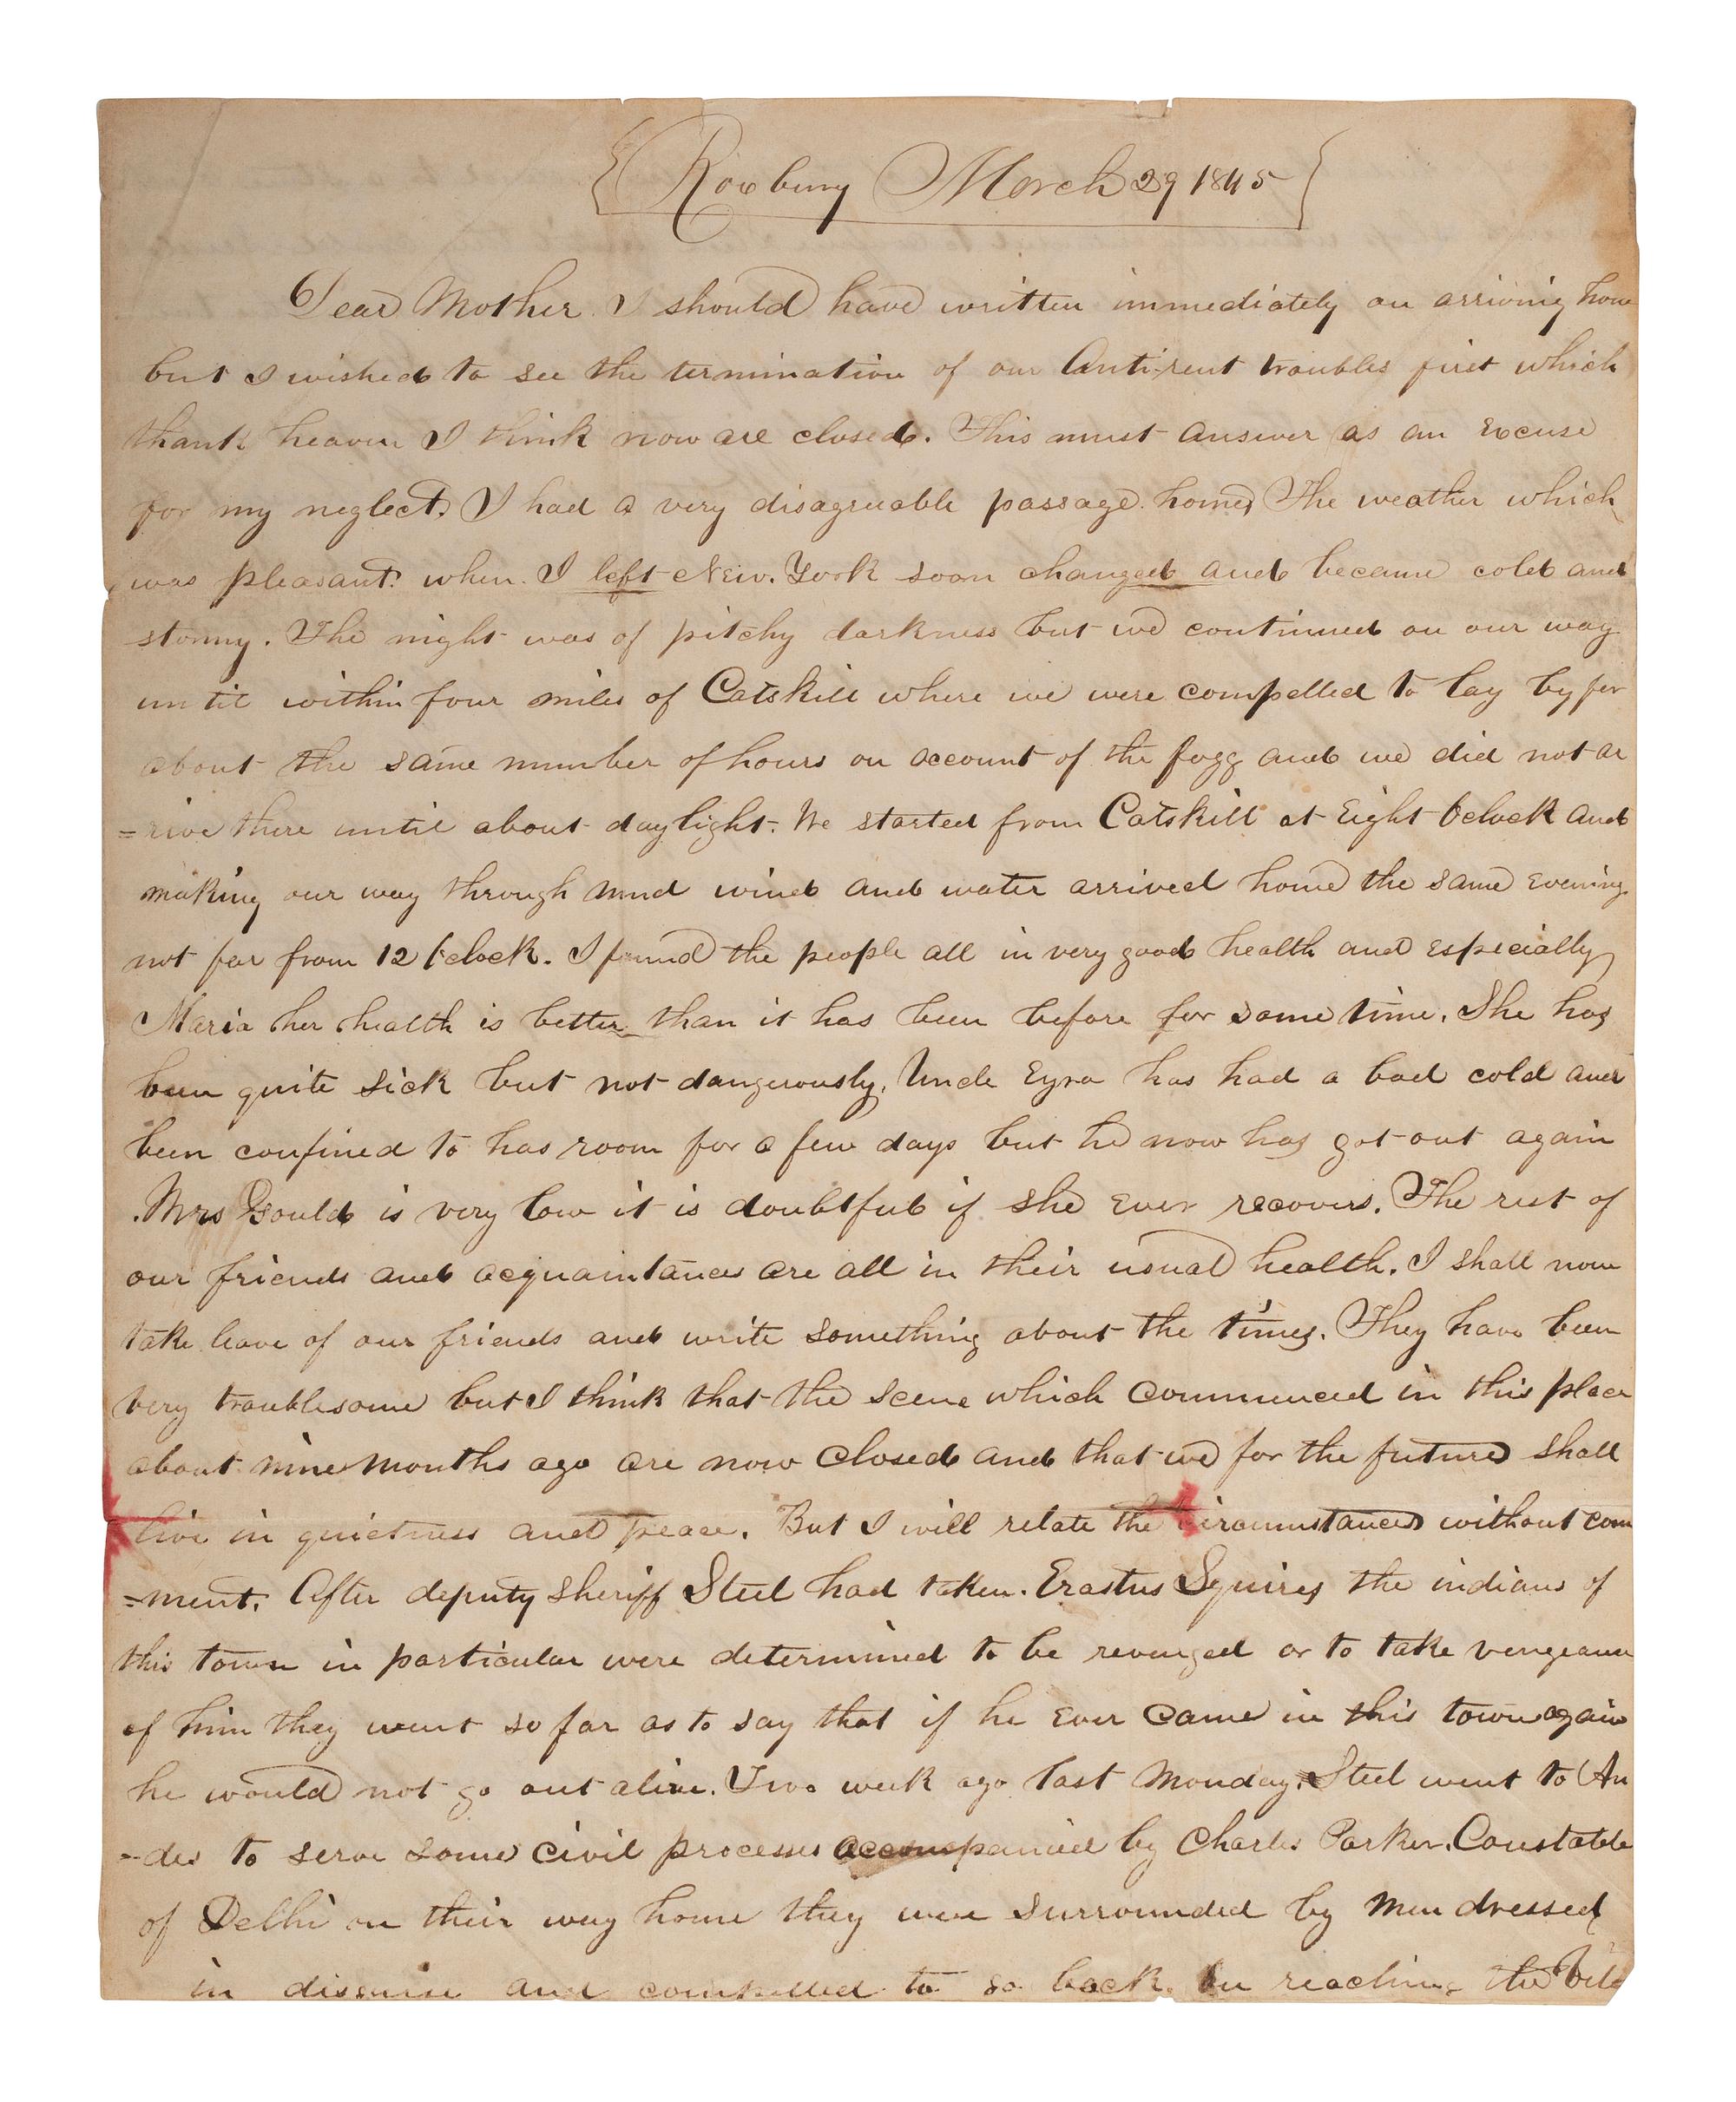 Roxbury March 29 1845
Dear Mother I should have written immediately on arriving home
but I wished to see the termination of our Anti-rent troubles first which
thank heaven I think now are closed. This must answer as an Excuse
for my neglect. I had a very disagreeable passage home, The weather which
was pleasant when I left New York soon changed and became cold and
stormy. The night was of pitchy darkness but we continued on our way
until within four miles of Catskill where we were compelled to lay by for
about the same number of hours on account of the fogg and we did not ar
=rive there until about daylight. We started from Catskill at Eight Oclock and
making our way through mud wind and water arrived home the same Evening
not far from 12 Oclock. I found the people all in very good health and Especially
Maria her health is better than it has been before for some time. She has
been quite sick but not dangerously. Uncle Ezra has had a bad cold and
been confined to has room for a few days but he now has got out again
Mrs Gould is very low it is doubtful if she Ever recovers. The rest of
our friends and acquaintances are all in their usual health. I shall now
take leave of our friends and write something about the times. They have been
very troublesome but I think that the scene which Commenced in this place
about nine months ago are now Closed and that we for the future shall
live in quietness and peace. But I will relate the circumstances without com
=ment. After deputy sheriff Steel had taken. Erastus Squires the indians of
this town in particular were determined to be revenged or to take vengeance
of him they went so far as to say that if he Ever Came in this town again
he would not go out alive. Two week ago last Monday, Steel went to An
-des to serve some civil processes accompanied by Charles Parker. Constable
of Delhi on their way home they were surrounded by Men dressed
in disguise and compelled to go back. On reaching the